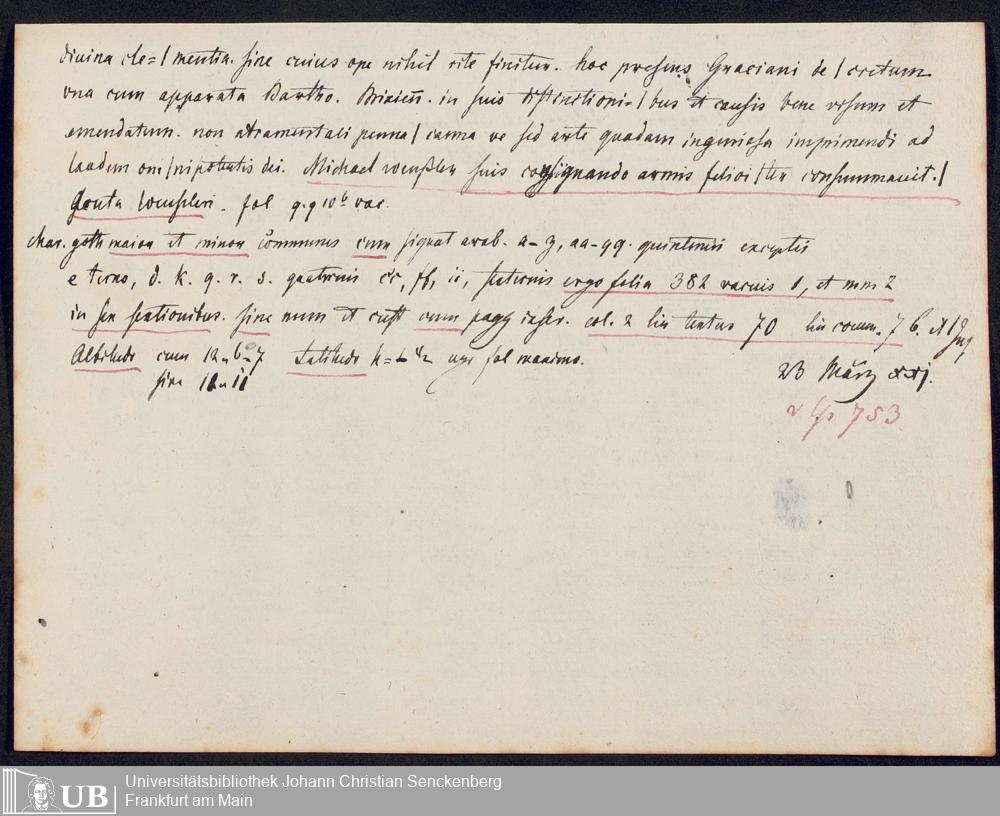 diuina cle=/mentia. sine cuius ope nihil rite finitur. hoc presens Graciani de/cretum
vna cum apparatu Bartho. Brixieñ. in suis distinctioni=/bus et causis bene visum et
emendatum. non atramentali penna/canna ve sed arte quadam ingeniosa imprimendi ad
laudem omnipotentis dei. Michael wenßler suis consignando armis felici/ter consummauit./
Scuta wenssleri. fol qq 10b vac.
char. goth maior et minor communis cum signat arab. a-z, aa-qq. quinternis exceptis
e terno, d. k. q. r. s. quaternis cc, ff, ii, sexternis ergo folia 382 vacuis 1, et mm 2
in sex sectionibus. sine num et cust cum pagg inscr. col. 2 lin textus 70 lin comm. 7
Altitudo cum 12
sine 11
Latitudo fol maximo.
23 März xxj.
753
UB Universitätsbibliothek Johann Christian Senckenberg
Frankfurt am Main